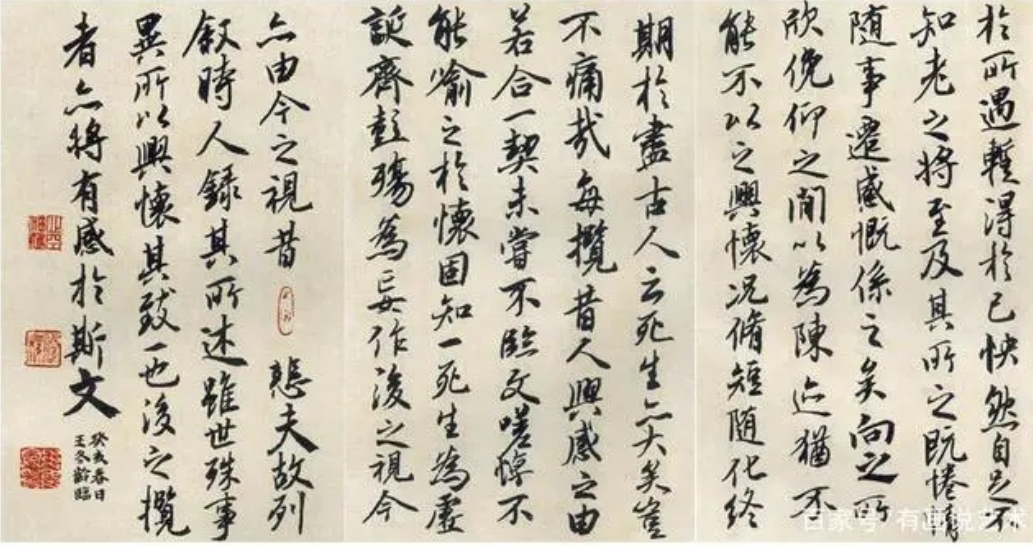 於所遇暫得於己快然自足不
知老之將至及其所之既惓情
随事遷感慨係之矣向之所
欣俛仰之閒以為陳迹猶不
能不以之興懷况脩短随化終
期於盡古人云死生亦大矣豈
不痛哉每攬昔人興感之由
若合一契未嘗不臨文嗟悼不
能喻之於懷固知一死生為虚
誕齊彭殤為妄作後之視今
亦由今之視昔 悲夫故列
叙時人録其所述雖世殊事
異所以興懷其致一也後之攬
者亦將有感於斯文
癸亥春日
王冬齡臨
百家号/有画说艺术